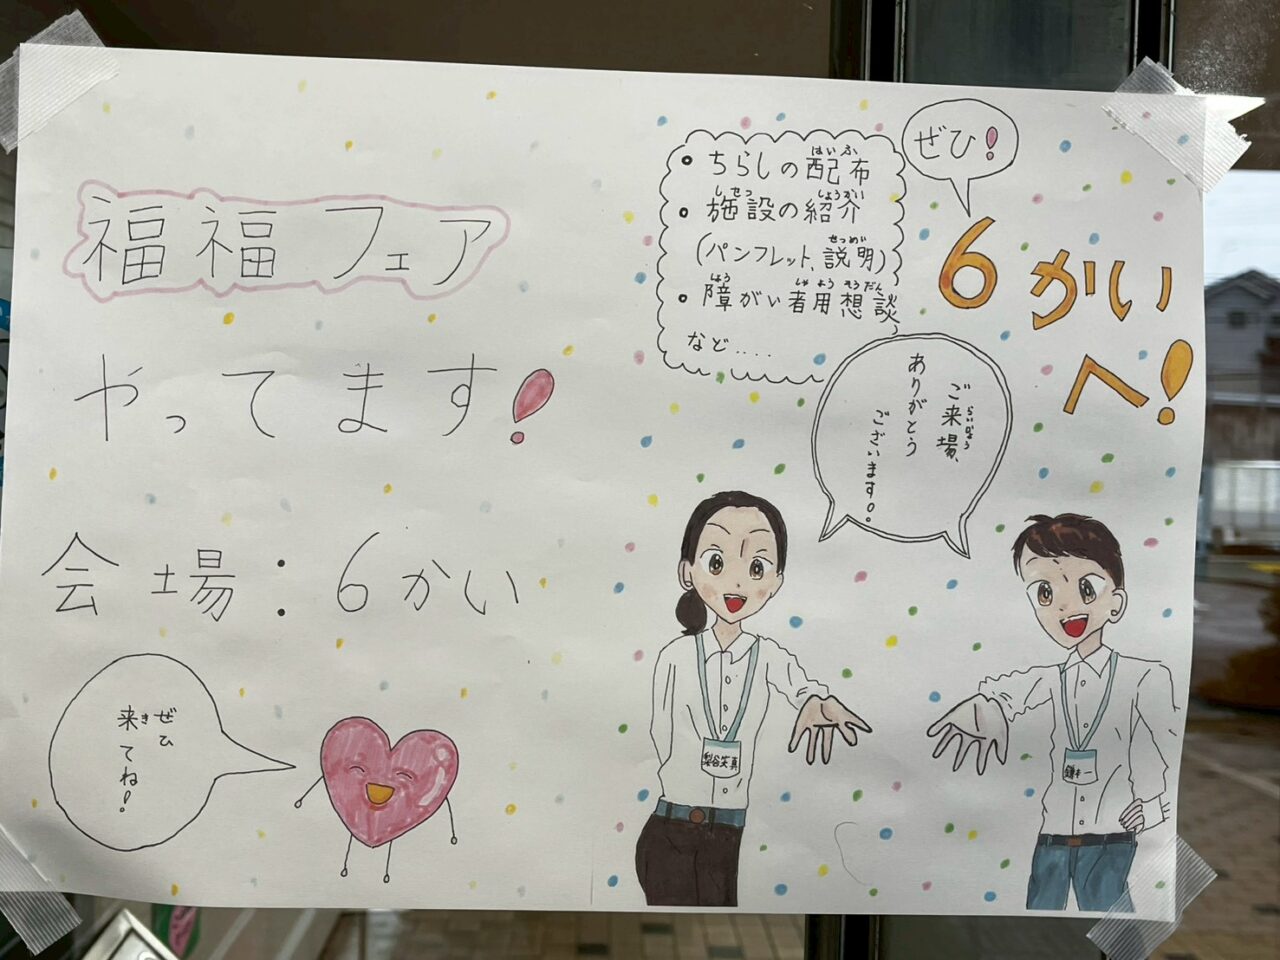 福福フェア
やってます!
会場:6かい
ぜひ
来てね!
き
・ちらしの配布
はいふ
・施設の紹介
しせつ しょうかい
(パンフレット、説明)
せつめい
・障がい者用想談
しょう しゃ よう そうだん
など....
ぜひ!
6かい
へ!
ご来場、
らいじょう
ありがとう
ございます!
梨谷笑真